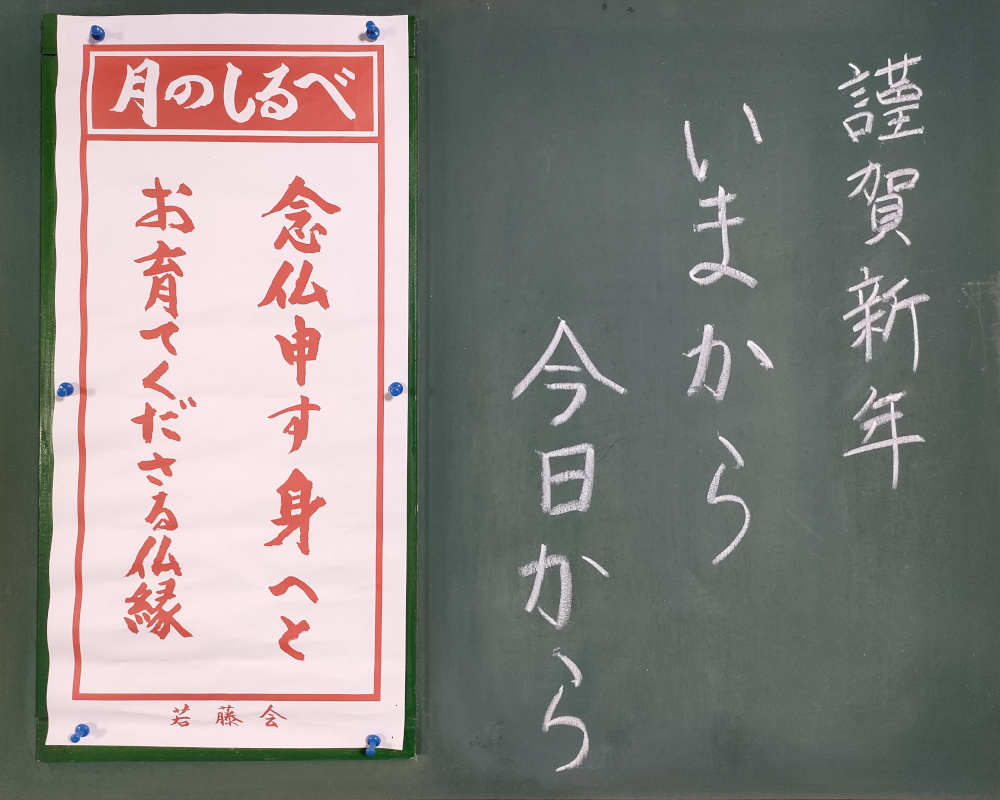 月のしるべ
念仏申す身へと
お育てくださる仏縁
若藤会
謹賀新年
いまから
今日から